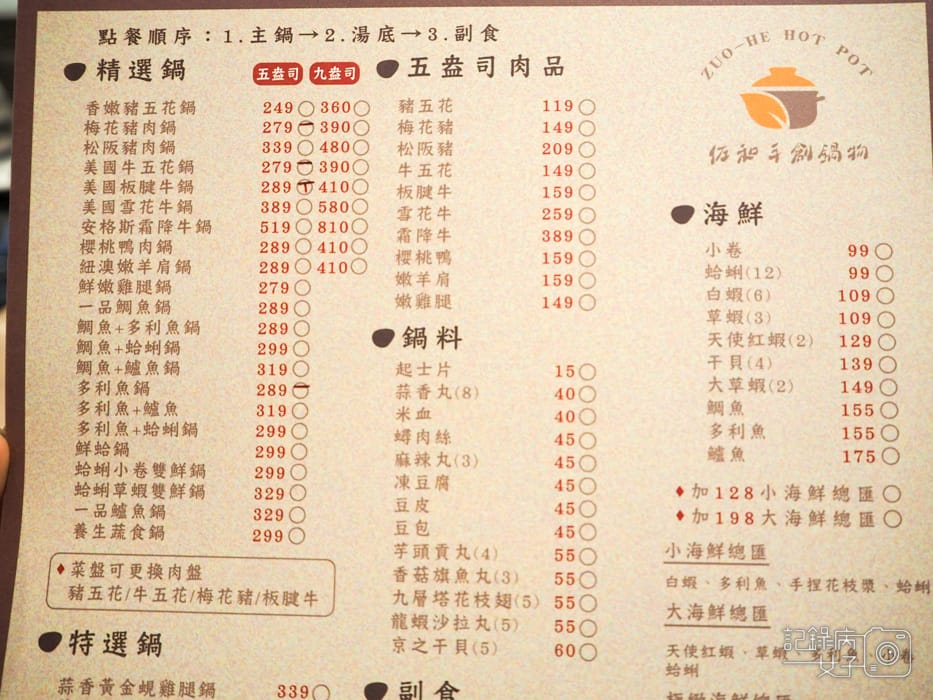 點餐順序：1.主鍋→2.湯底→3.副食
精選鍋 五盎司 九盎司
香嫩豬五花鍋 249 360
梅花豬肉鍋 279 390
松阪豬肉鍋 339 480
美國牛五花鍋 279 390
美國板腱牛鍋 289 410
美國雪花牛鍋 389 580
安格斯霜降牛鍋 519 810
櫻桃鴨肉鍋 289 410
紐澳嫩羊肩鍋 289 410
鮮嫩雞腿鍋 279
一品鯛魚鍋 289
鯛魚+多利魚鍋 289
鯛魚+蛤蜊鍋 299
鯛魚+鱸魚鍋 319
多利魚鍋 289
多利魚+鱸魚 319
多利魚+蛤蜊鍋 299
鮮蛤鍋 299
蛤蜊小卷雙鮮鍋 299
蛤蜊草蝦雙鮮鍋 329
一品鱸魚鍋 329
養生蔬食鍋 299
♦菜盤可更換肉盤
豬五花/牛五花/梅花豬/板腱牛
特選鍋
蒜香黃金蜆雞腿鍋 339
五盎司肉品
豬五花 119
梅花豬 149
松阪豬 209
牛五花 149
板腱牛 159
雪花牛 259
霜降牛 389
櫻桃鴨 159
嫩羊肩 159
嫩雞腿 149
鍋料
起士片 15
蒜香丸(8) 40
米血 40
蟳肉絲 45
麻辣丸(3) 45
凍豆腐 45
豆皮 45
豆包 45
芋頭貢丸(4) 55
香菇旗魚丸(3) 55
九層塔花枝翅(5) 55
龍蝦沙拉丸(5) 55
京之干貝(5) 60
副食
ZUO-HE HOT POT
佐和手創鍋物
海鮮
小卷 99
蛤蜊(12) 99
白蝦(6) 109
草蝦(3) 109
天使紅蝦(2) 129
干貝(4) 139
大草蝦(2) 149
鯛魚 155
多利魚 155
鱸魚 175
♦加128小海鮮總匯
♦加198大海鮮總匯
小海鮮總匯
白蝦、多利魚、手捏花枝漿、蛤蜊
大海鮮總匯
天使紅蝦、草蝦、多利魚、小卷
蛤蜊
海鮮總匯
記錄病
女子